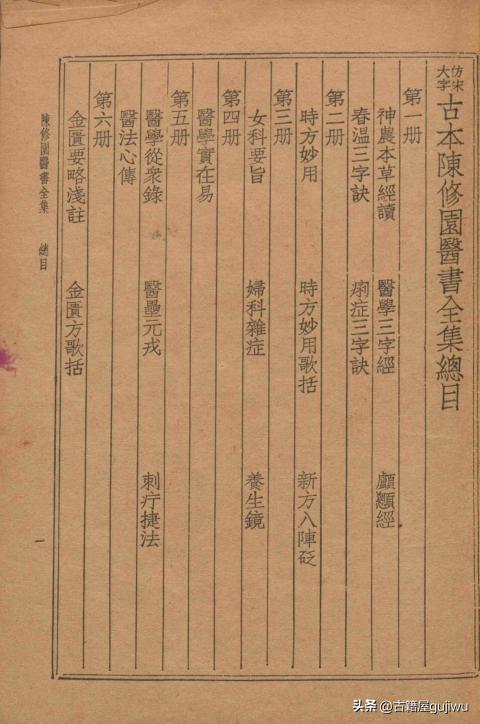 仿宋大字古本陳修園醫書全集總目
第一册
神農本草經讀 醫學三字經 顱顖經
春溫三字訣 痢症三字訣
第二册
時方妙用 時方妙用歌括 新方八陣砭
第三册
女科要旨 婦科雜症 養生鏡
第四册
醫學實在易
第五册
醫學從衆錄 醫壘元戎 刺疔捷法
醫法心傳
第六册
金匱要略淺註 金匱方歌括
陳修園醫書全集 總目 一
头条 @古籍屋gujiwu